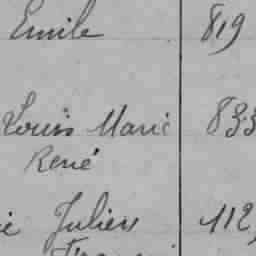 Emile 819
Louis Marie 833
René
ie Julien 112,